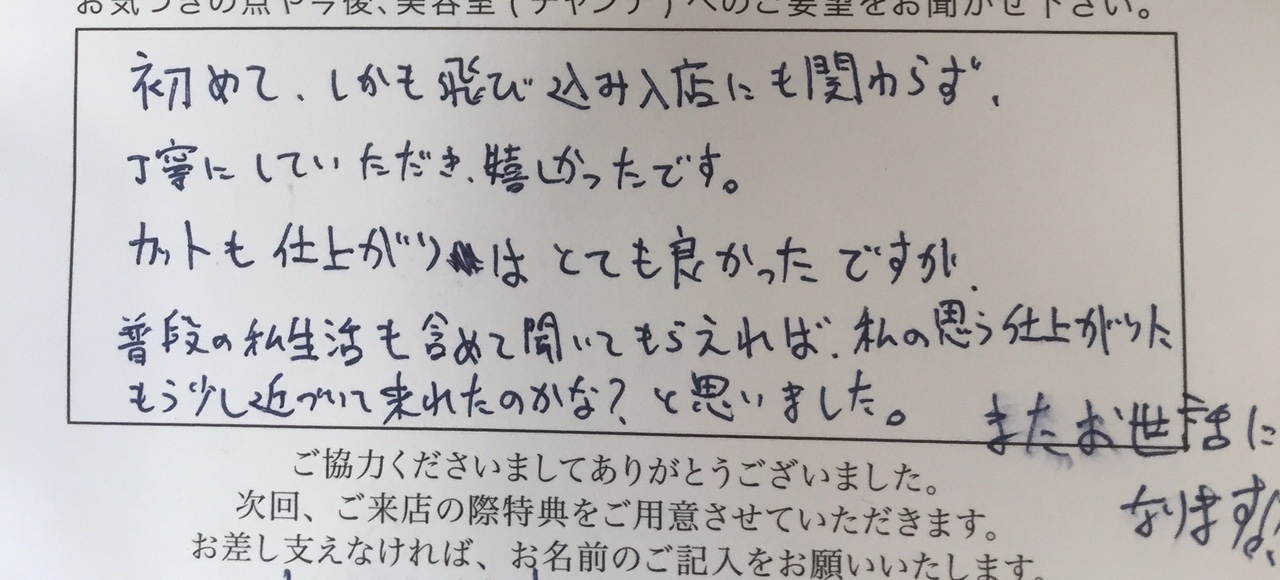 お気づきの点や今後、美容室(チャンプ)へのご要望をお聞かせ下さい。
初めて、しかも飛び込み入店にも関わらず、
丁寧にしていただき、嬉しかったです。
カットも仕上がりはとても良かったですが、
普段の私生活も含めて聞いてもらえれば、私の思う仕上がりに
もう少し近づいて来れたのかな?と思いました。
またお世話に
なります!
ご協力くださいましてありがとうございました。
次回、ご来店の際特典をご用意させていただきます。
お差し支えなければ、お名前のご記入をお願いいたします。